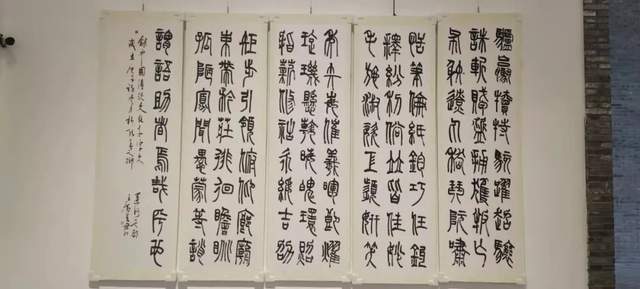 驢騾犢特駭躍超驤
誅斬賊盜捕獲叛亡
布射遼丸嵇琴阮嘯
恬筆倫紙鈞巧任釣
釋紛利俗並皆佳妙
毛施淑姿工顰妍笑
年矢每催羲暉朗曜
璇璣懸斡晦魄環照
指薪修祜永綏吉劭
矩步引領俯仰廊廟
束帶矜莊徘徊瞻眺
孤陋寡聞愚蒙等誚
謂語助者焉哉乎也